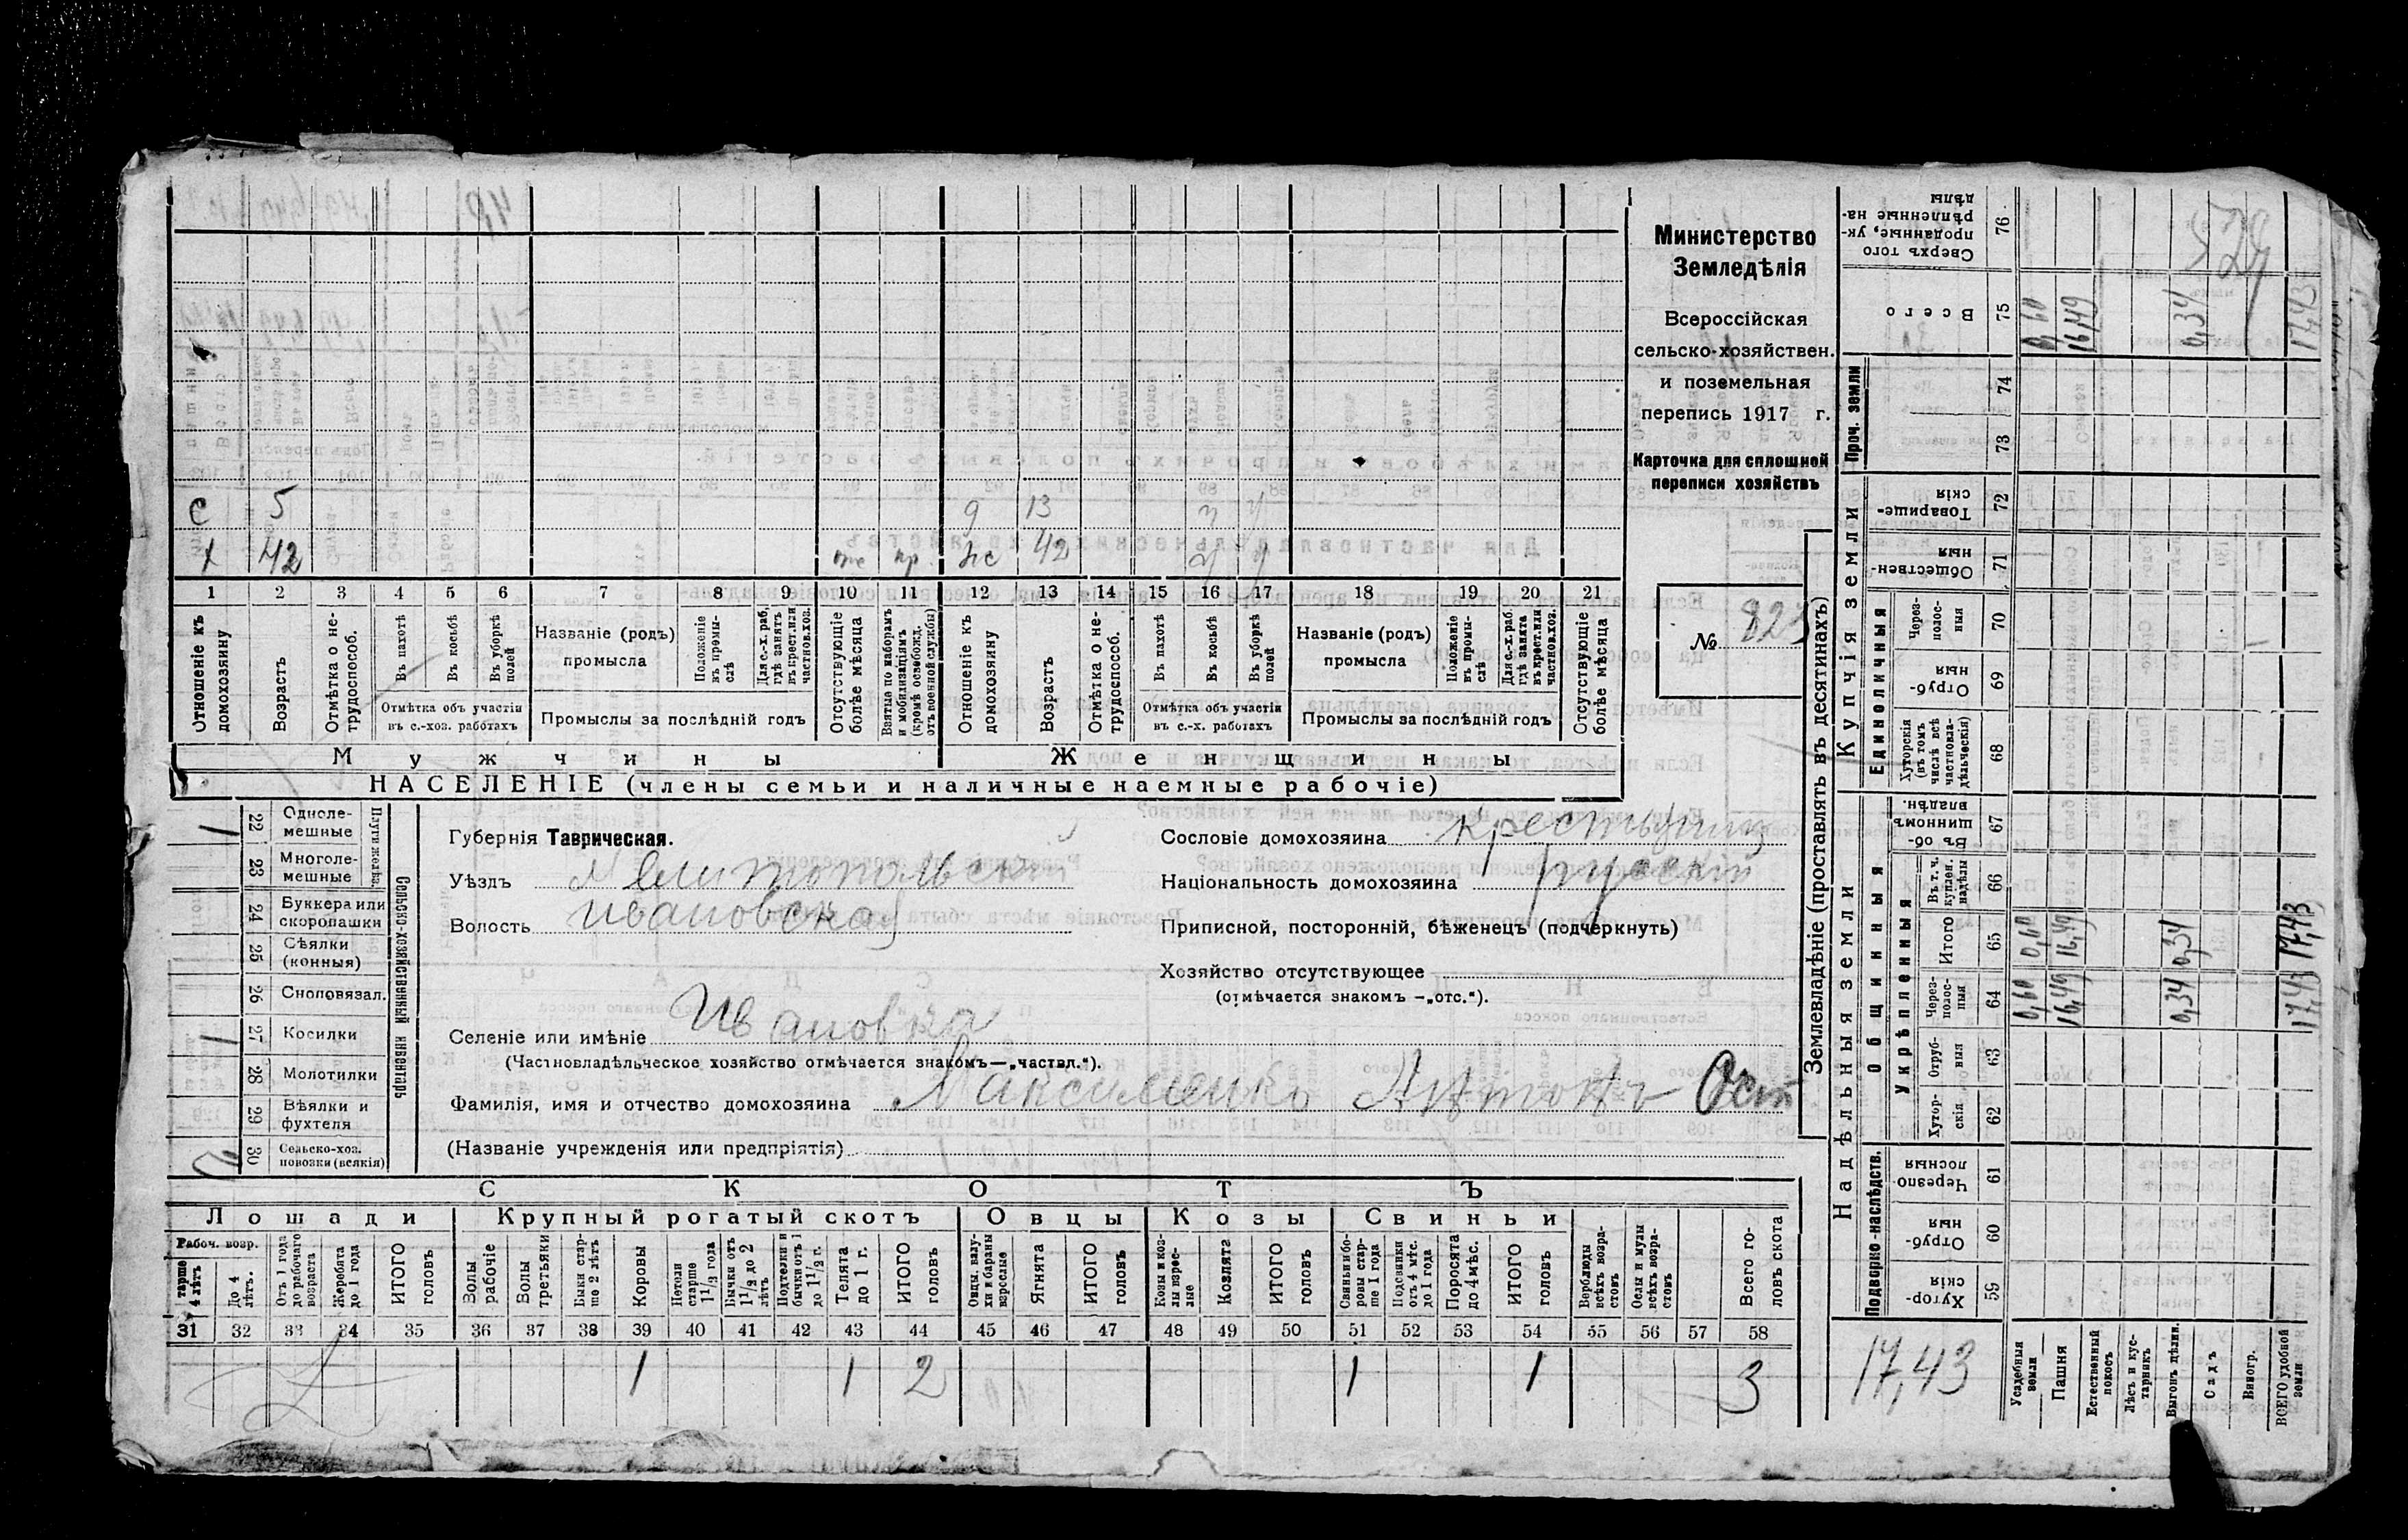 Министерство
Земледѣлія
Всероссійская
сельско-хозяйствен.
и поземельная
перепись 1917 г.
Карточка для сплошной
переписи хозяйствъ
№ 823
с 5 д 13 у у
х 42 от пр. жс 42 у у
1 2 3 4 5 6 7 8 9 10 11 12 13 14 15 16 17 18 19 20 21
Отношеніе къ домохозяину
Возрастъ
Отмѣтка о нетрудоспособ.
Въ пахотѣ
Въ косьбѣ
Въ уборкѣ полей
Отмѣтка объ участіи въ с.-хоз. работахъ
Названіе (родъ) промысла
Положеніе въ промыслѣ
Для с.-х. раб. гдѣ занятъ въ крест. или частнов. хоз.
Промыслы за послѣдній годъ
Отсутствующіе болѣе мѣсяца
Взятые по наборамъ и мобилизаціямъ (кромѣ освобожд. отъ военной службы)
Отношеніе къ домохозяину
Возрастъ
Отмѣтка о нетрудоспособ.
Въ пахотѣ
Въ косьбѣ
Въ уборкѣ полей
Отмѣтка объ участіи въ с.-х. работахъ
Названіе (родъ) промысла
Положеніе въ промыслѣ
Для с.-х. раб. гдѣ занята въ крест. или частнов. хоз.
Промыслы за послѣдній годъ
Отсутствующіе болѣе мѣсяца
Мужчины Женщины
НАСЕЛЕНІЕ (члены семьи и наличные наемные рабочіе)
Сельско-хозяйственный инвентарь
Плуги желѣз.
22 Однолемешные 1
23 Многолемешные
24 Буккера или скоропашки
25 Сѣялки (конныя)
26 Сноповязал.
27 Косилки 1
28 Молотилки
29 Вѣялки и фухтеля
30 Сельско-хоз. повозки (всякія)
Губернія Таврическая.
Уѣздъ Мелитопольскій
Волость Ивановская
Селеніе или имѣніе Ивановка
(Частновладѣльческое хозяйство отмѣчается знакомъ—„частвл.“).
Фамилія, имя и отчество домохозяина Максименко Антонъ Ост
(Названіе учрежденія или предпріятія)
Сословіе домохозяина крестьянинъ
Національность домохозяина русскій
Приписной, посторонній, бѣженецъ (подчеркнуть)
Хозяйство отсутствующее
(отмѣчается знакомъ —„отс.“).
СКОТЪ
Лошади Крупный рогатый скотъ Овцы Козы Свиньи
Рабоч. возр.
тарше 4 лѣтъ
До 4 лѣтъ.
Отъ 1 года до рабочаго возраста
Жеребята до 1 года
ИТОГО головъ
Волы рабочіе
Волы третьяки
Быки старше 2 лѣтъ
Коровы
Нетели старше 1 1/2 года
Бычки отъ 1 1/2 до 2 лѣтъ
Подтелки и бычки отъ 1 до 1 1/2 г.
Телята до 1 г.
ИТОГО головъ
Овцы, валухи и бараны взрослые
Ягнята
ИТОГО головъ
Козы и козлы взрослые
Козлята
ИТОГО головъ
Свиньи и боровы старше 1 года
Подсвинки отъ 4 мѣс. до 1 года
Поросята до 4 мѣс.
ИТОГО головъ
Верблюды всѣхъ возрастовъ
Ослы и мулы всѣхъ возрастовъ
Всего головъ скота
31 32 33 34 35 36 37 38 39 40 41 42 43 44 45 46 47 48 49 50 51 52 53 54 55 56 57 58
1 1 2 1 1 3
Землевладѣніе (проставлять въ десятинахъ)
Надѣльныя земли Купчія земли Проч. земли
Подворно-наслѣдств.
Общинныя
Укрѣпленныя
Единоличныя
Хуторскія 59
Отрубныя 60
Черезполосныя 61
Хуторскія 62
Отрубныя 63
Черезполосныя 64
Итого 65
Въ т. ч. куплен. надѣлы 66
Въ общинномъ владѣн. 67
Хуторскія (въ томъ числѣ всѣ частновладѣльческія) 68
Отрубныя 69
Черезполосныя 70
Общественныя 71
Товарищескія 72
73
74
Всего 75
Сверхъ того проданные, укрѣпленные надѣлы 76
17,43
Усадебныя земли 0,60 0,60 0,60
Пашня 16,49 16,49 16,49
Естественный покосъ
Лѣсъ и кустарникъ
Выгонъ дѣлин. 0,34 0,34 0,34
Садъ
Виногр.
ВСЕГО удобной земли 17,43 17,43 17,43